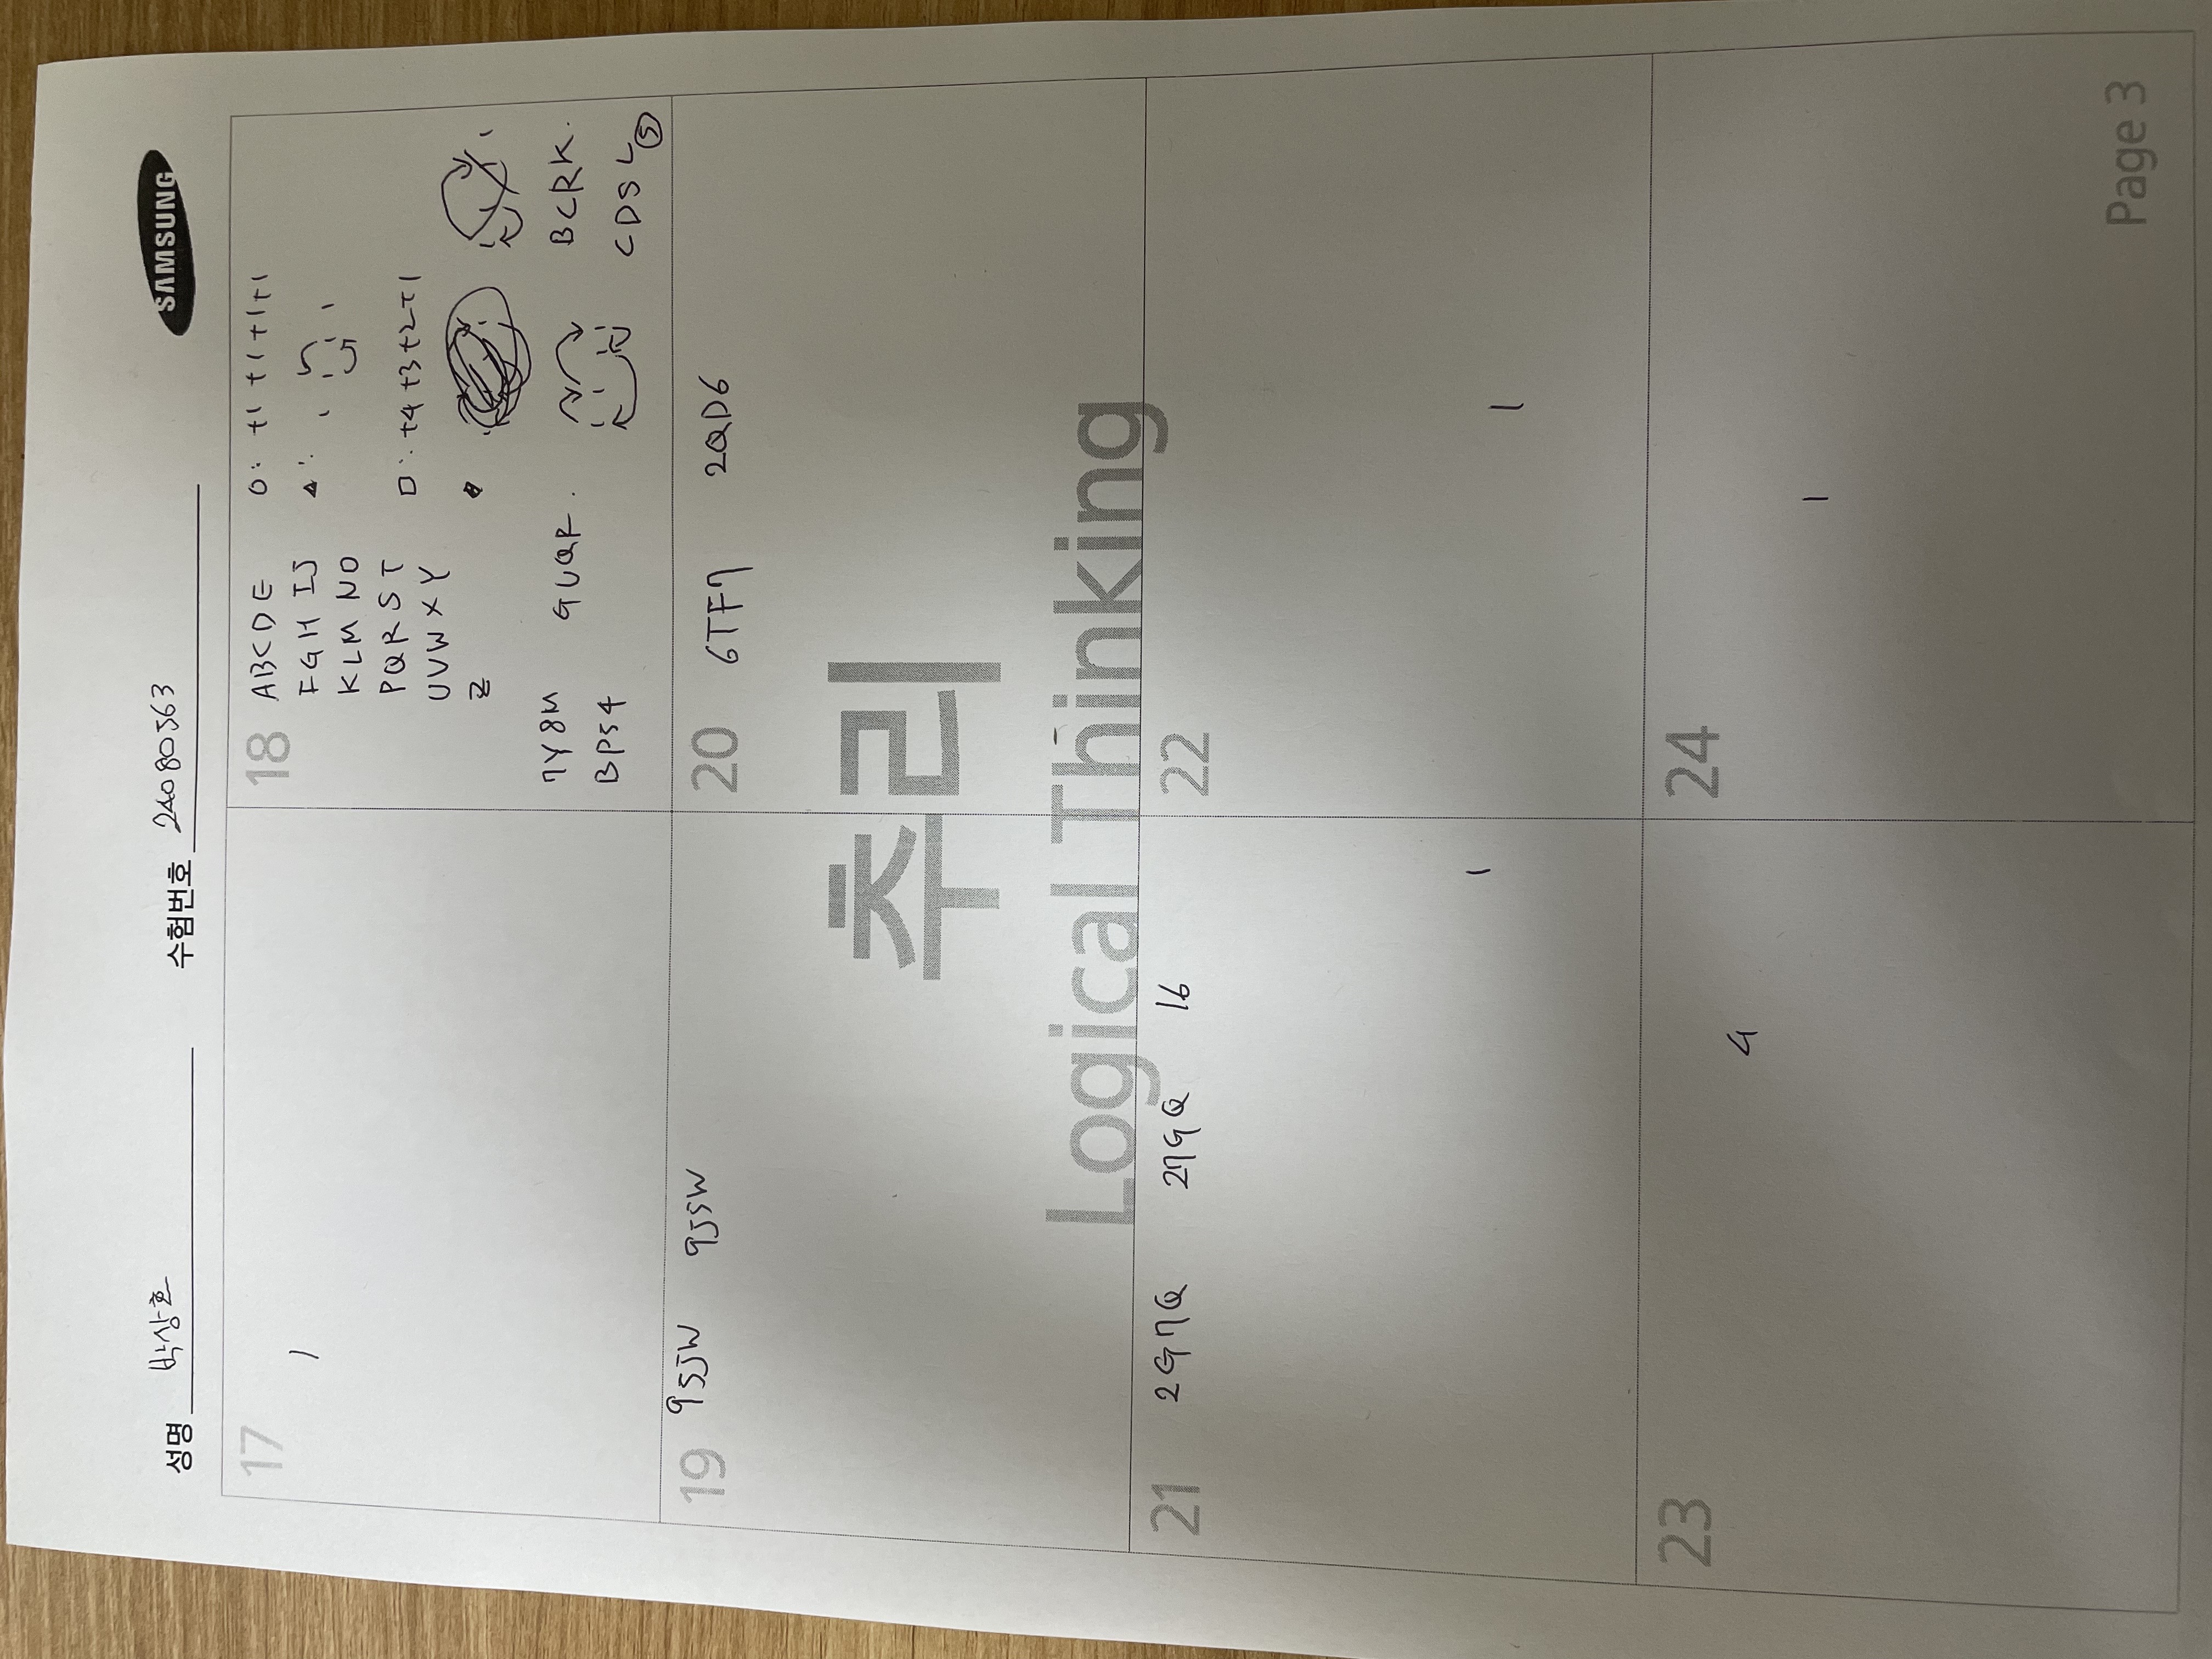 성명 박상호 수험번호 24080563 SAMSUNG
17
1
18
ABCDE O: +1 +1 +1 +1
FGH IJ △:
KLM NO
PQRST □: +4 +3 +2 +1
UVWXY
Z
7Y8M GUQR. BCRK.
BP54 CDSL ⑤
19 95JW 9J5W
20 6TF7 2QD6
추리
Logical Thinking
21 2G7Q 27GQ 16
1
22
1
23
4
24
1
Page 3